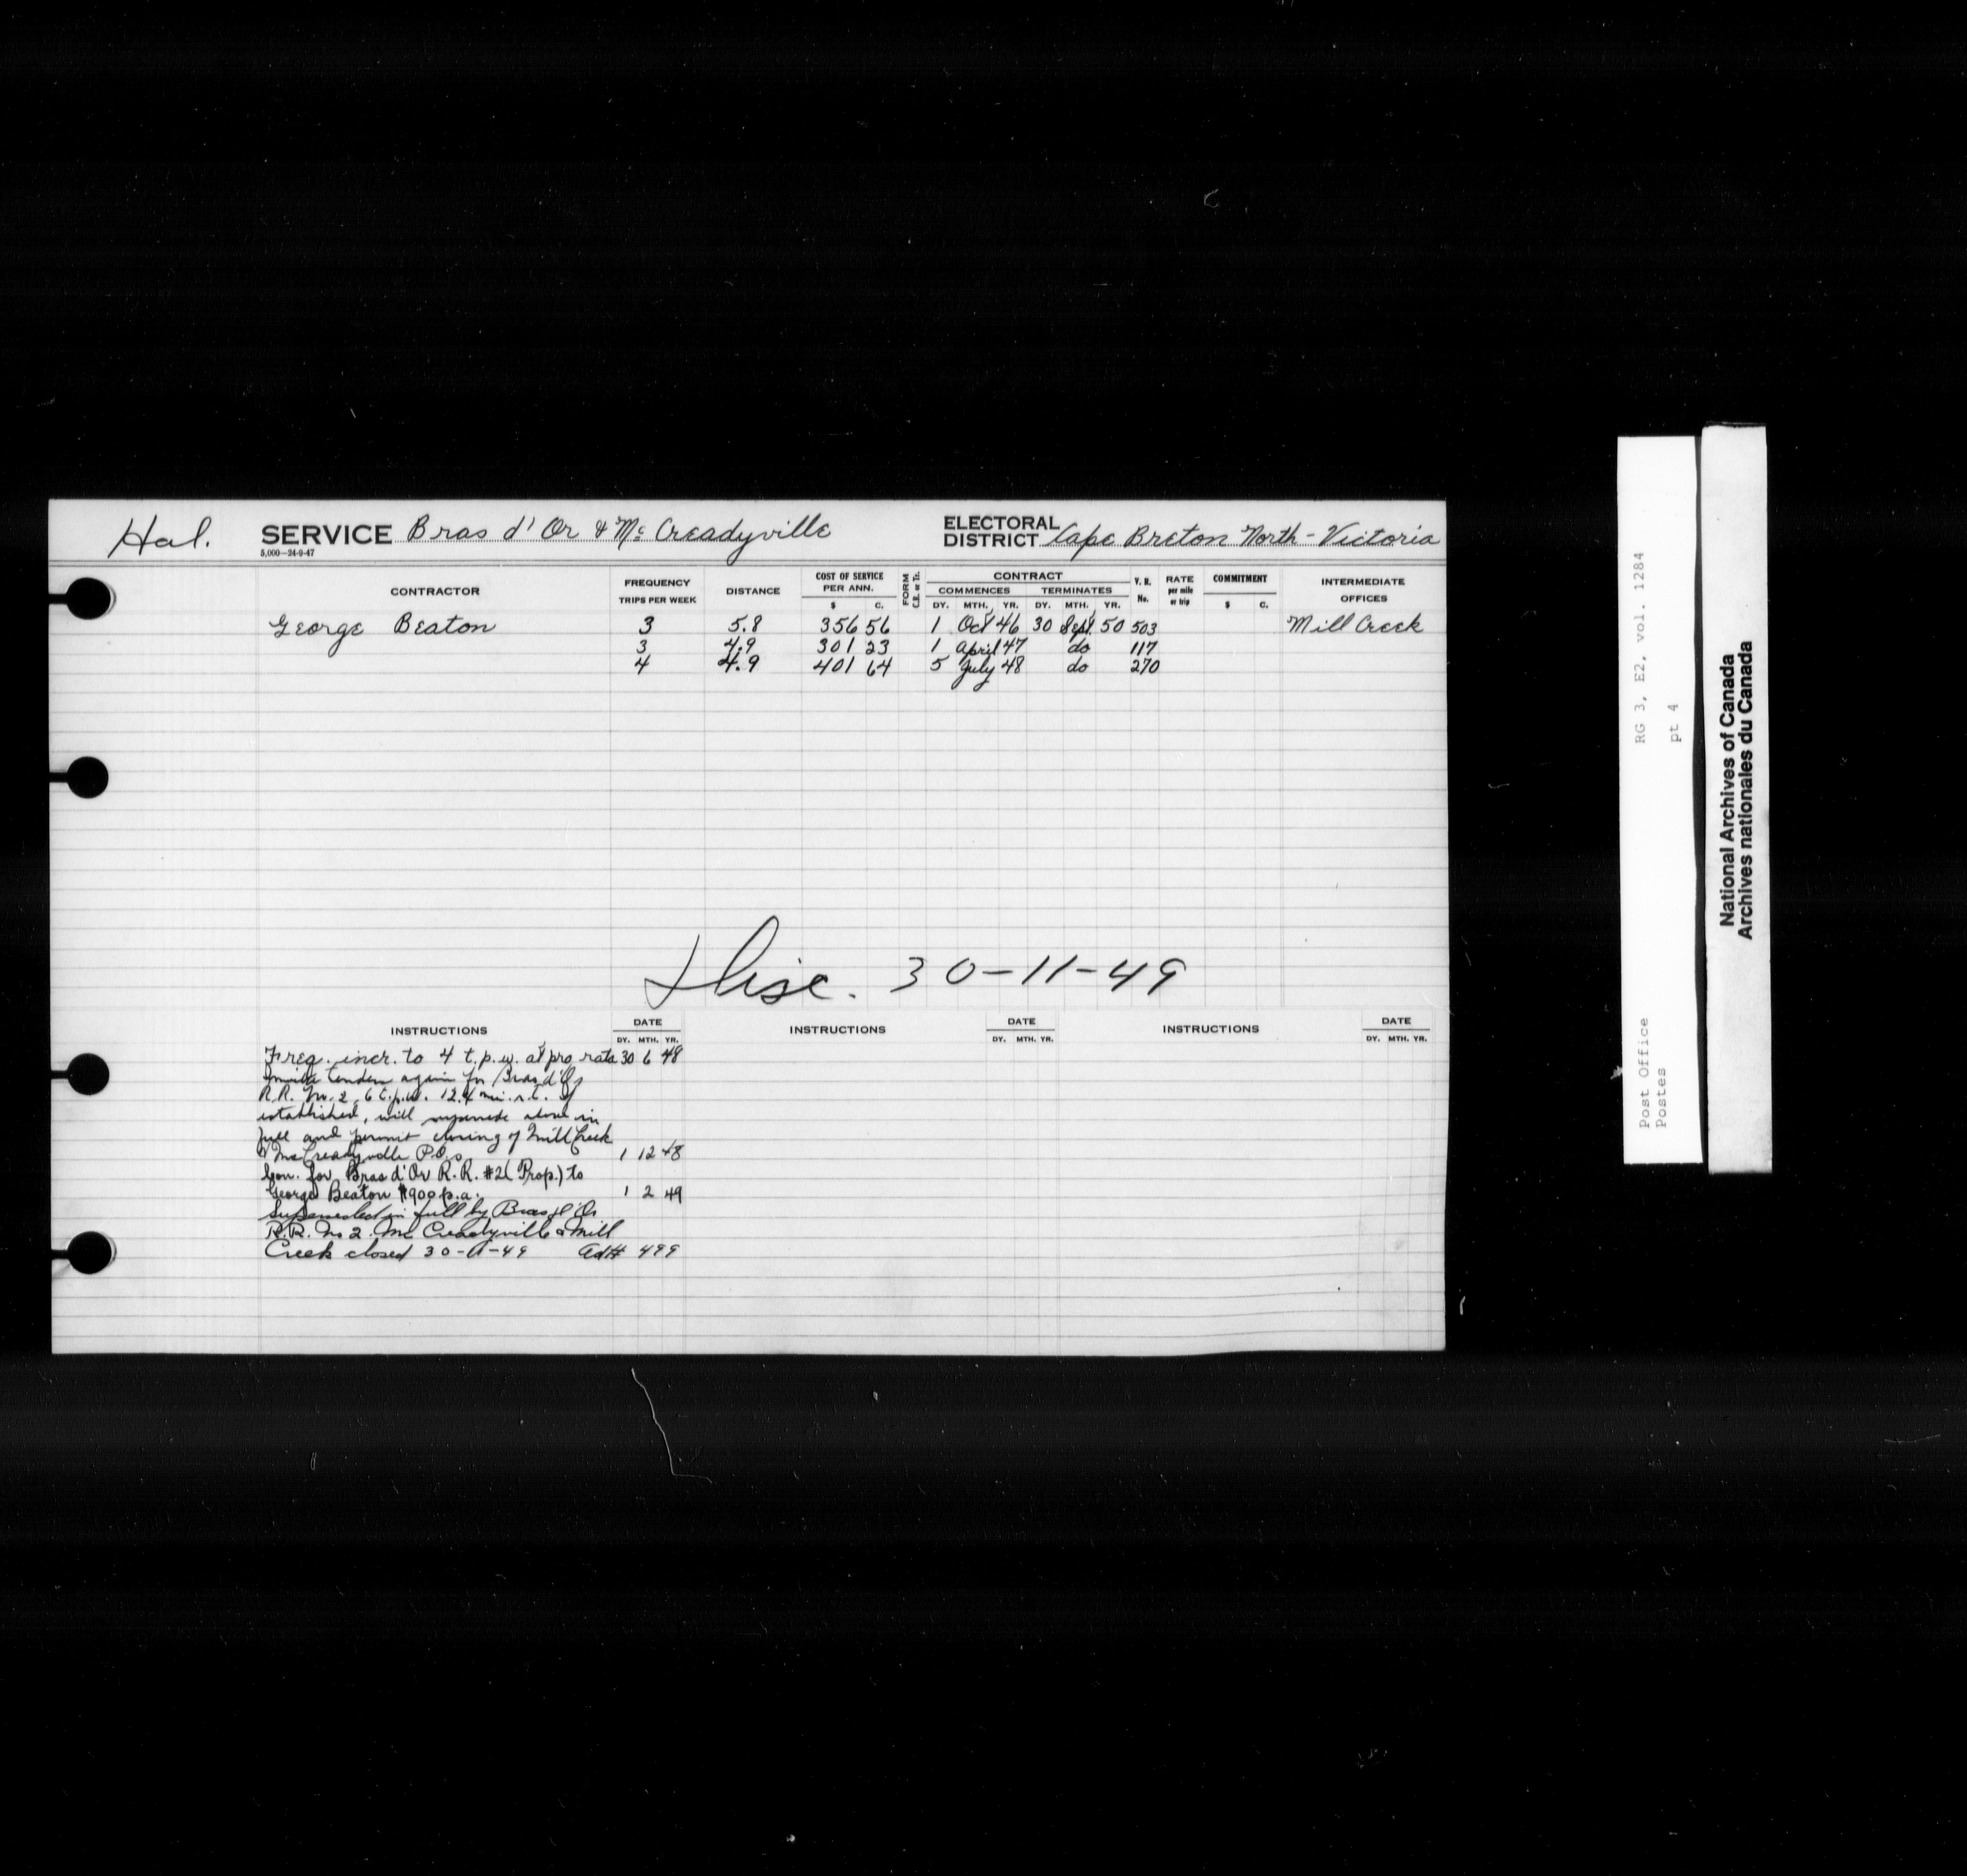 Hal. SERVICE Bras d'Or & Mc Creadyville ELECTORAL DISTRICT Cape Breton North - Victoria
5,000—24-9-47
CONTRACTOR FREQUENCY TRIPS PER WEEK DISTANCE COST OF SERVICE PER ANN. $ C. FORM C.R. or Tr. CONTRACT COMMENCES DY. MTH. YR. TERMINATES DY. MTH. YR. V. R. No. RATE per mile or trip COMMITMENT $ C. INTERMEDIATE OFFICES
George Beaton 3 5.8 356 56 1 Oct 46 30 Sept. 50 503 Mill Creek
3 4.9 301 23 1 April 47 do 117
4 4.9 401 64 5 July 48 do 270
Disc. 30-11-49
INSTRUCTIONS DATE DY. MTH. YR. INSTRUCTIONS DATE DY. MTH. YR. INSTRUCTIONS DATE DY. MTH. YR.
Freq. incr. to 4 t.p.w. at pro rata 30 6 48
Invite tenders again for Bras d'Or
R.R. No. 2, 6 t.p.w. 12.4 mi. r.t. If
established, will supersede above in
full and permit closing of Mill Creek
& McCreadyville P.O.s 1 12 48
Con. for Bras d'Or R.R. #2 (Prop.) to
George Beaton $900 p.a. 1 2 49
Superseded in full by Bras d'Or
R.R. No 2. Mc Creadyville & Mill
Creek closed 30-11-49 Ad# 499
RG 3, E2, vol. 1284
pt 4
Post Office
Postes
National Archives of Canada
Archives nationales du Canada